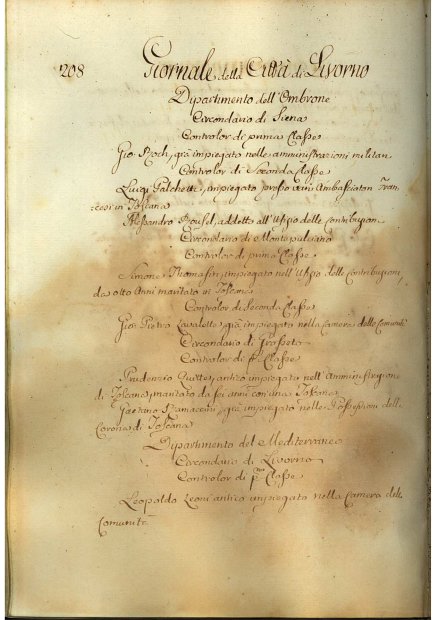 208 Giornale della Città di Livorno
Dipartimento dell'Ombrone
Circondario di Siena
Controlor di prima Classe
Gio. Roch, già impiegato nelle amministrazioni militari
Controlor di Seconda Classe
Luigi impiegato presso Ambasciatori Fran
cesi in Toscana
Alessandro addetto all'Ufizio delle Contribuzioni
Circondario di Montepulciano
Controlor di prima Classe
Simone Thomasin, impiegato nell'Ufizio delle Contribuzioni,
da otto Anni maritato in Toscana
Controlor di Seconda Classe
Gio. Pietro già impiegato nella Camera delle Comunità
Circondario di Grosseto
Controlor di Pa. Classe
Prudenzio antico impiegato nell'Amministrazione
di Toscana, maritato da sei anni con una Toscana
Gaetano già impiegato nelle Possessioni della
Corona di Toscana
Dipartimento del Mediterraneo
Circondario di Livorno
Controlor di Pa. Classe
Leopoldo Leoni antico impiegato nella Camera delle
Comunità